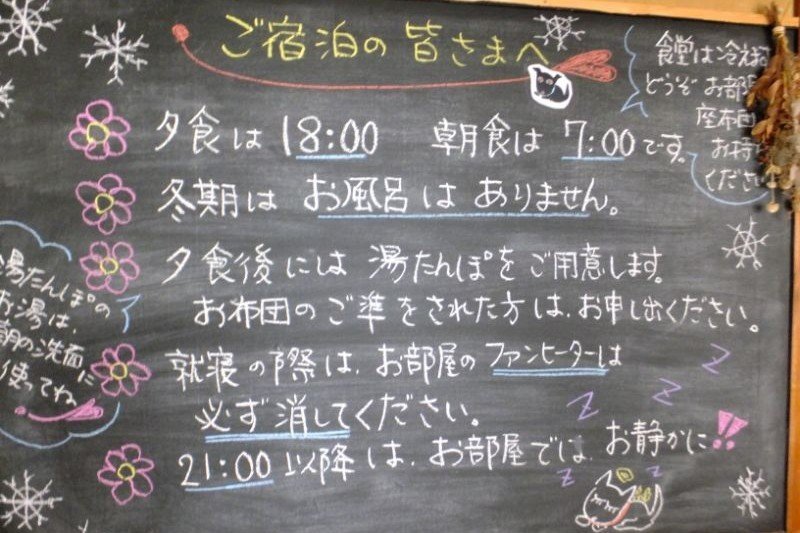 ご宿泊の皆さまへ
食堂は冷えます
どうぞお部屋
座布団
お持ち
ください
夕食は18:00 朝食は7:00です。
冬期はお風呂はありません。
夕食後には湯たんぽをご用意します。
お布団のご準をされた方は、お申し出ください。
就寝の際は、お部屋のファンヒーターは
必ず消してください。
21:00以降は、お部屋では、お静かに!!
湯たんぽの
お湯は、
朝の洗面に
使ってね